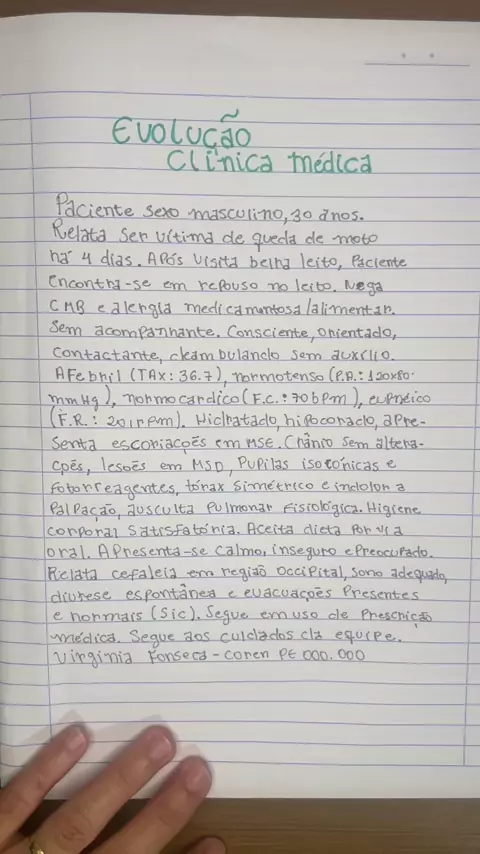 Evolução
Clínica médica
Paciente sexo masculino, 30 anos.
Relata ser vítima de queda de moto
há 4 dias. Após visita beira leito, paciente
encontra-se em repouso no leito. Nega
CMB e alergia medicamentosa/alimentar.
Sem acompanhante. Consciente, orientado,
contactante, deambulando sem auxílio.
Afebril (TAX: 36.7), normotenso (P.A.: 120x80
mmHg), normocardico (F.C.: 70 bpm), eupneico
(F.R.: 20 irpm). Hidratado, hipocorado, apre-
senta escoriações em MSE. Crânio sem altera-
ções, lesões em MSD, pupilas isotônicas e
fotorreagentes, tórax simétrico e indolor a
palpação, ausculta pulmonar fisiológica. Higiene
corporal satisfatória. Aceita dieta por via
oral. Apresenta-se calmo, inseguro e preocupado.
Relata cefaleia em região occipital, sono adequado,
diurese espontânea e evacuações presentes
e normais (sic). Segue em uso de prescrição
médica. Segue aos cuidados da equipe.
Virgínia Fonseca - coren PE 000.000